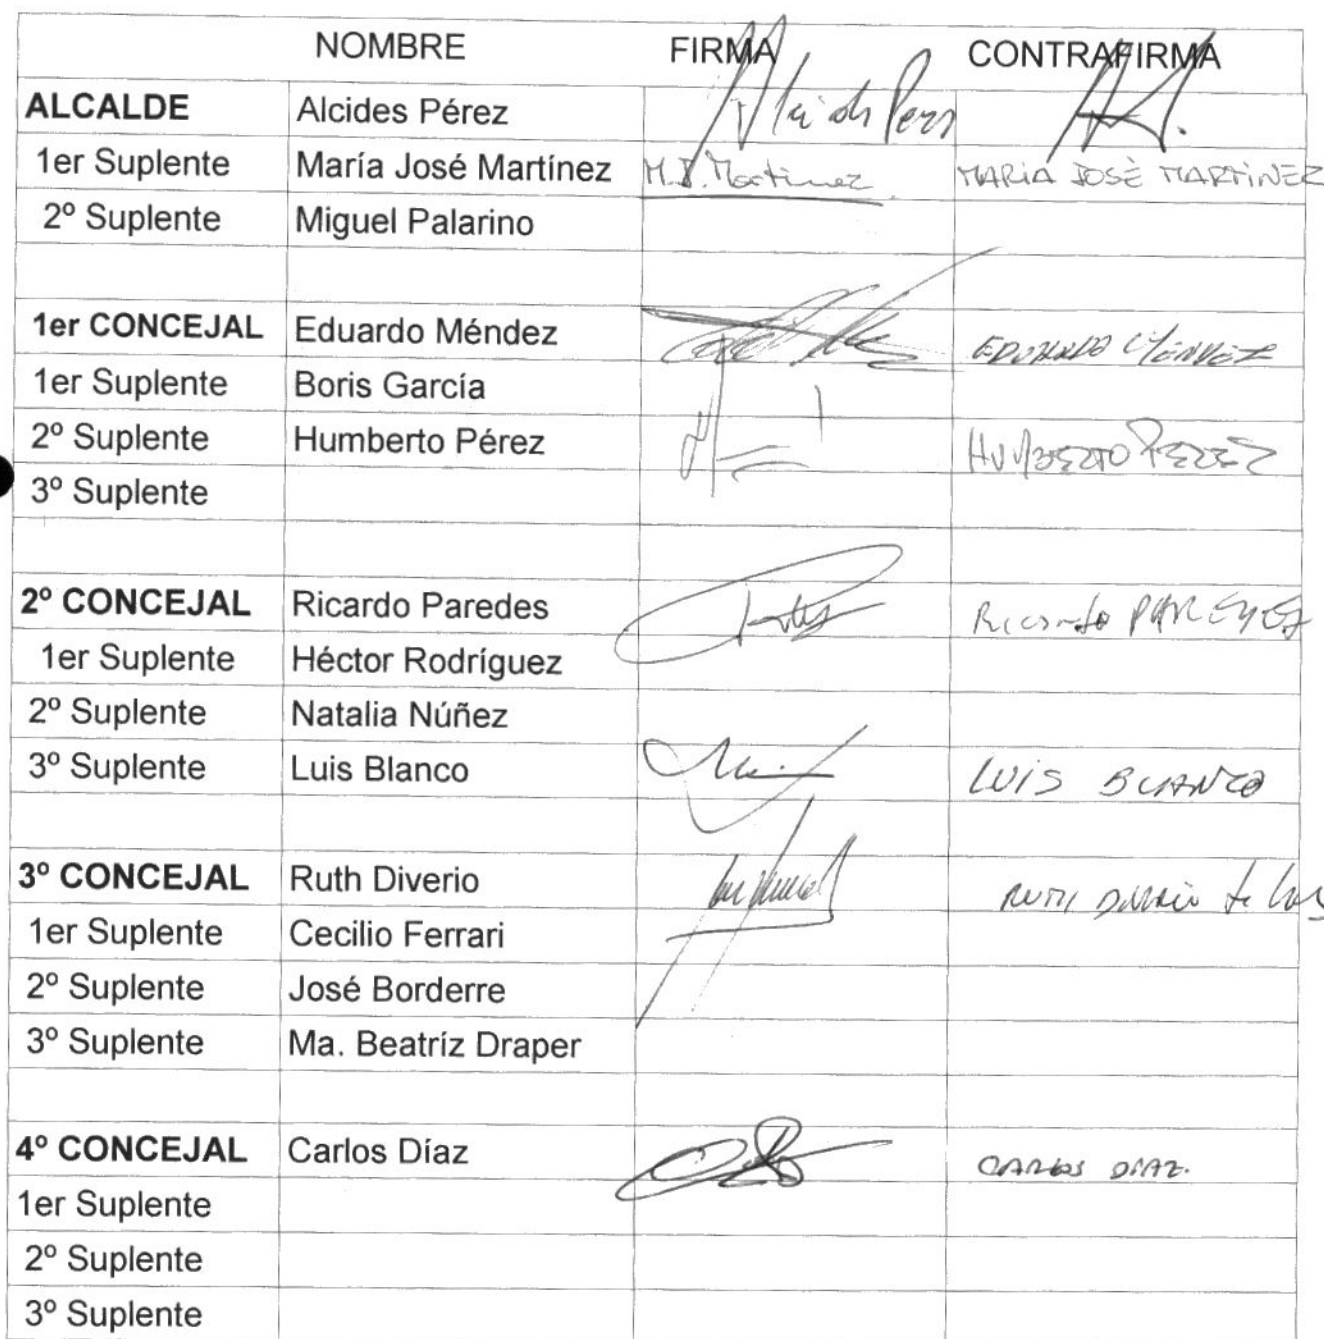 NOMBRE FIRMA CONTRAFIRMA
ALCALDE Alcides Pérez Alcides Perez
1er Suplente María José Martínez M.J. Martinez MARÍA JOSÉ MARTÍNEZ
2º Suplente Miguel Palarino
1er CONCEJAL Eduardo Méndez EDUARDO MÉNDEZ
1er Suplente Boris García
2º Suplente Humberto Pérez HUMBERTO PEREZ
3º Suplente
2º CONCEJAL Ricardo Paredes Ricardo PAREDES
1er Suplente Héctor Rodríguez
2º Suplente Natalia Núñez
3º Suplente Luis Blanco LUIS BLANCO
3º CONCEJAL Ruth Diverio RUTH DIVERIO de
1er Suplente Cecilio Ferrari
2º Suplente José Borderre
3º Suplente Ma. Beatríz Draper
4º CONCEJAL Carlos Díaz CARLOS DÍAZ.
1er Suplente
2º Suplente
3º Suplente